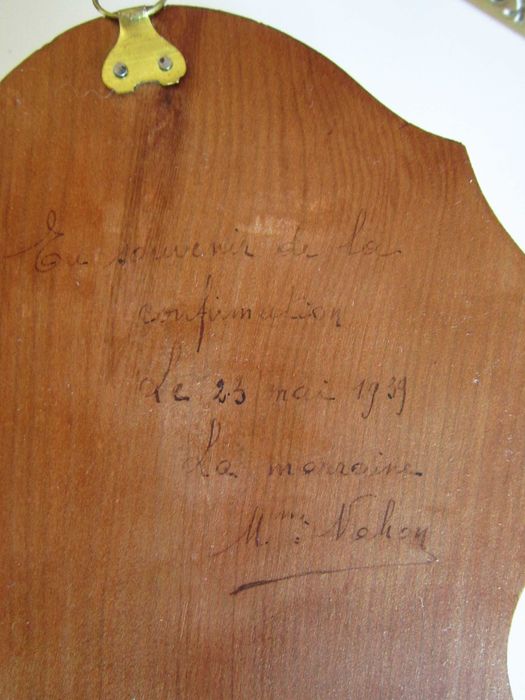 En souvenir de la
confirmation
Le 23 mai 1939
La marraine
Mme Nohon